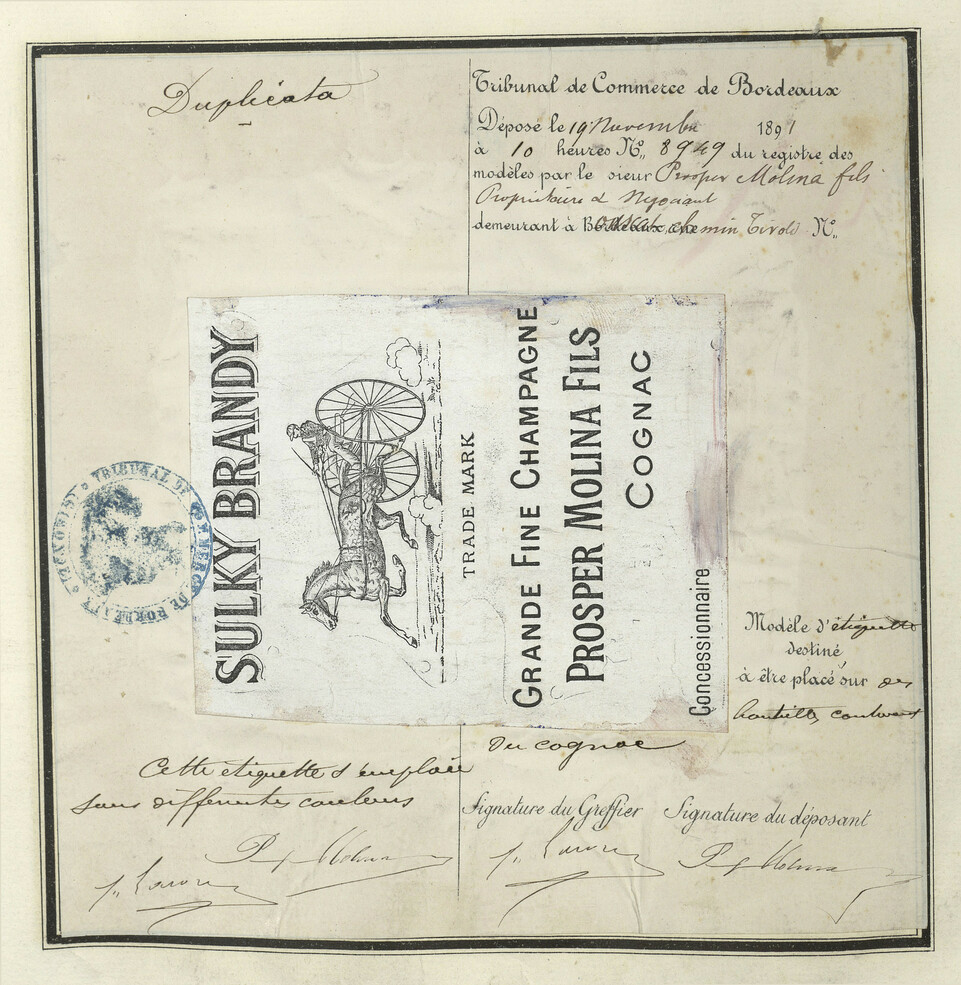 Duplicata
Tribunal de Commerce de Bordeaux
Déposé le 19 Novembre 1891
à 10 heures N° 8949 du registre des
modèles par le sieur Prosper Molina fils
Propriétaire & Négociant
demeurant à Bordeaux chemin Tivoli N°
SULKY BRANDY
TRADE MARK
GRANDE FINE CHAMPAGNE
PROSPER MOLINA FILS
COGNAC
Concessionnaire
TRIBUNAL DE COMMERCE DE BORDEAUX
Modèle d'étiquette
destiné
à être placé sur des
bouteilles contenant
du cognac
Cette étiquette s'emploie
sous différentes couleurs
Signature du Greffier Signature du déposant
P. Molina
P. Molina